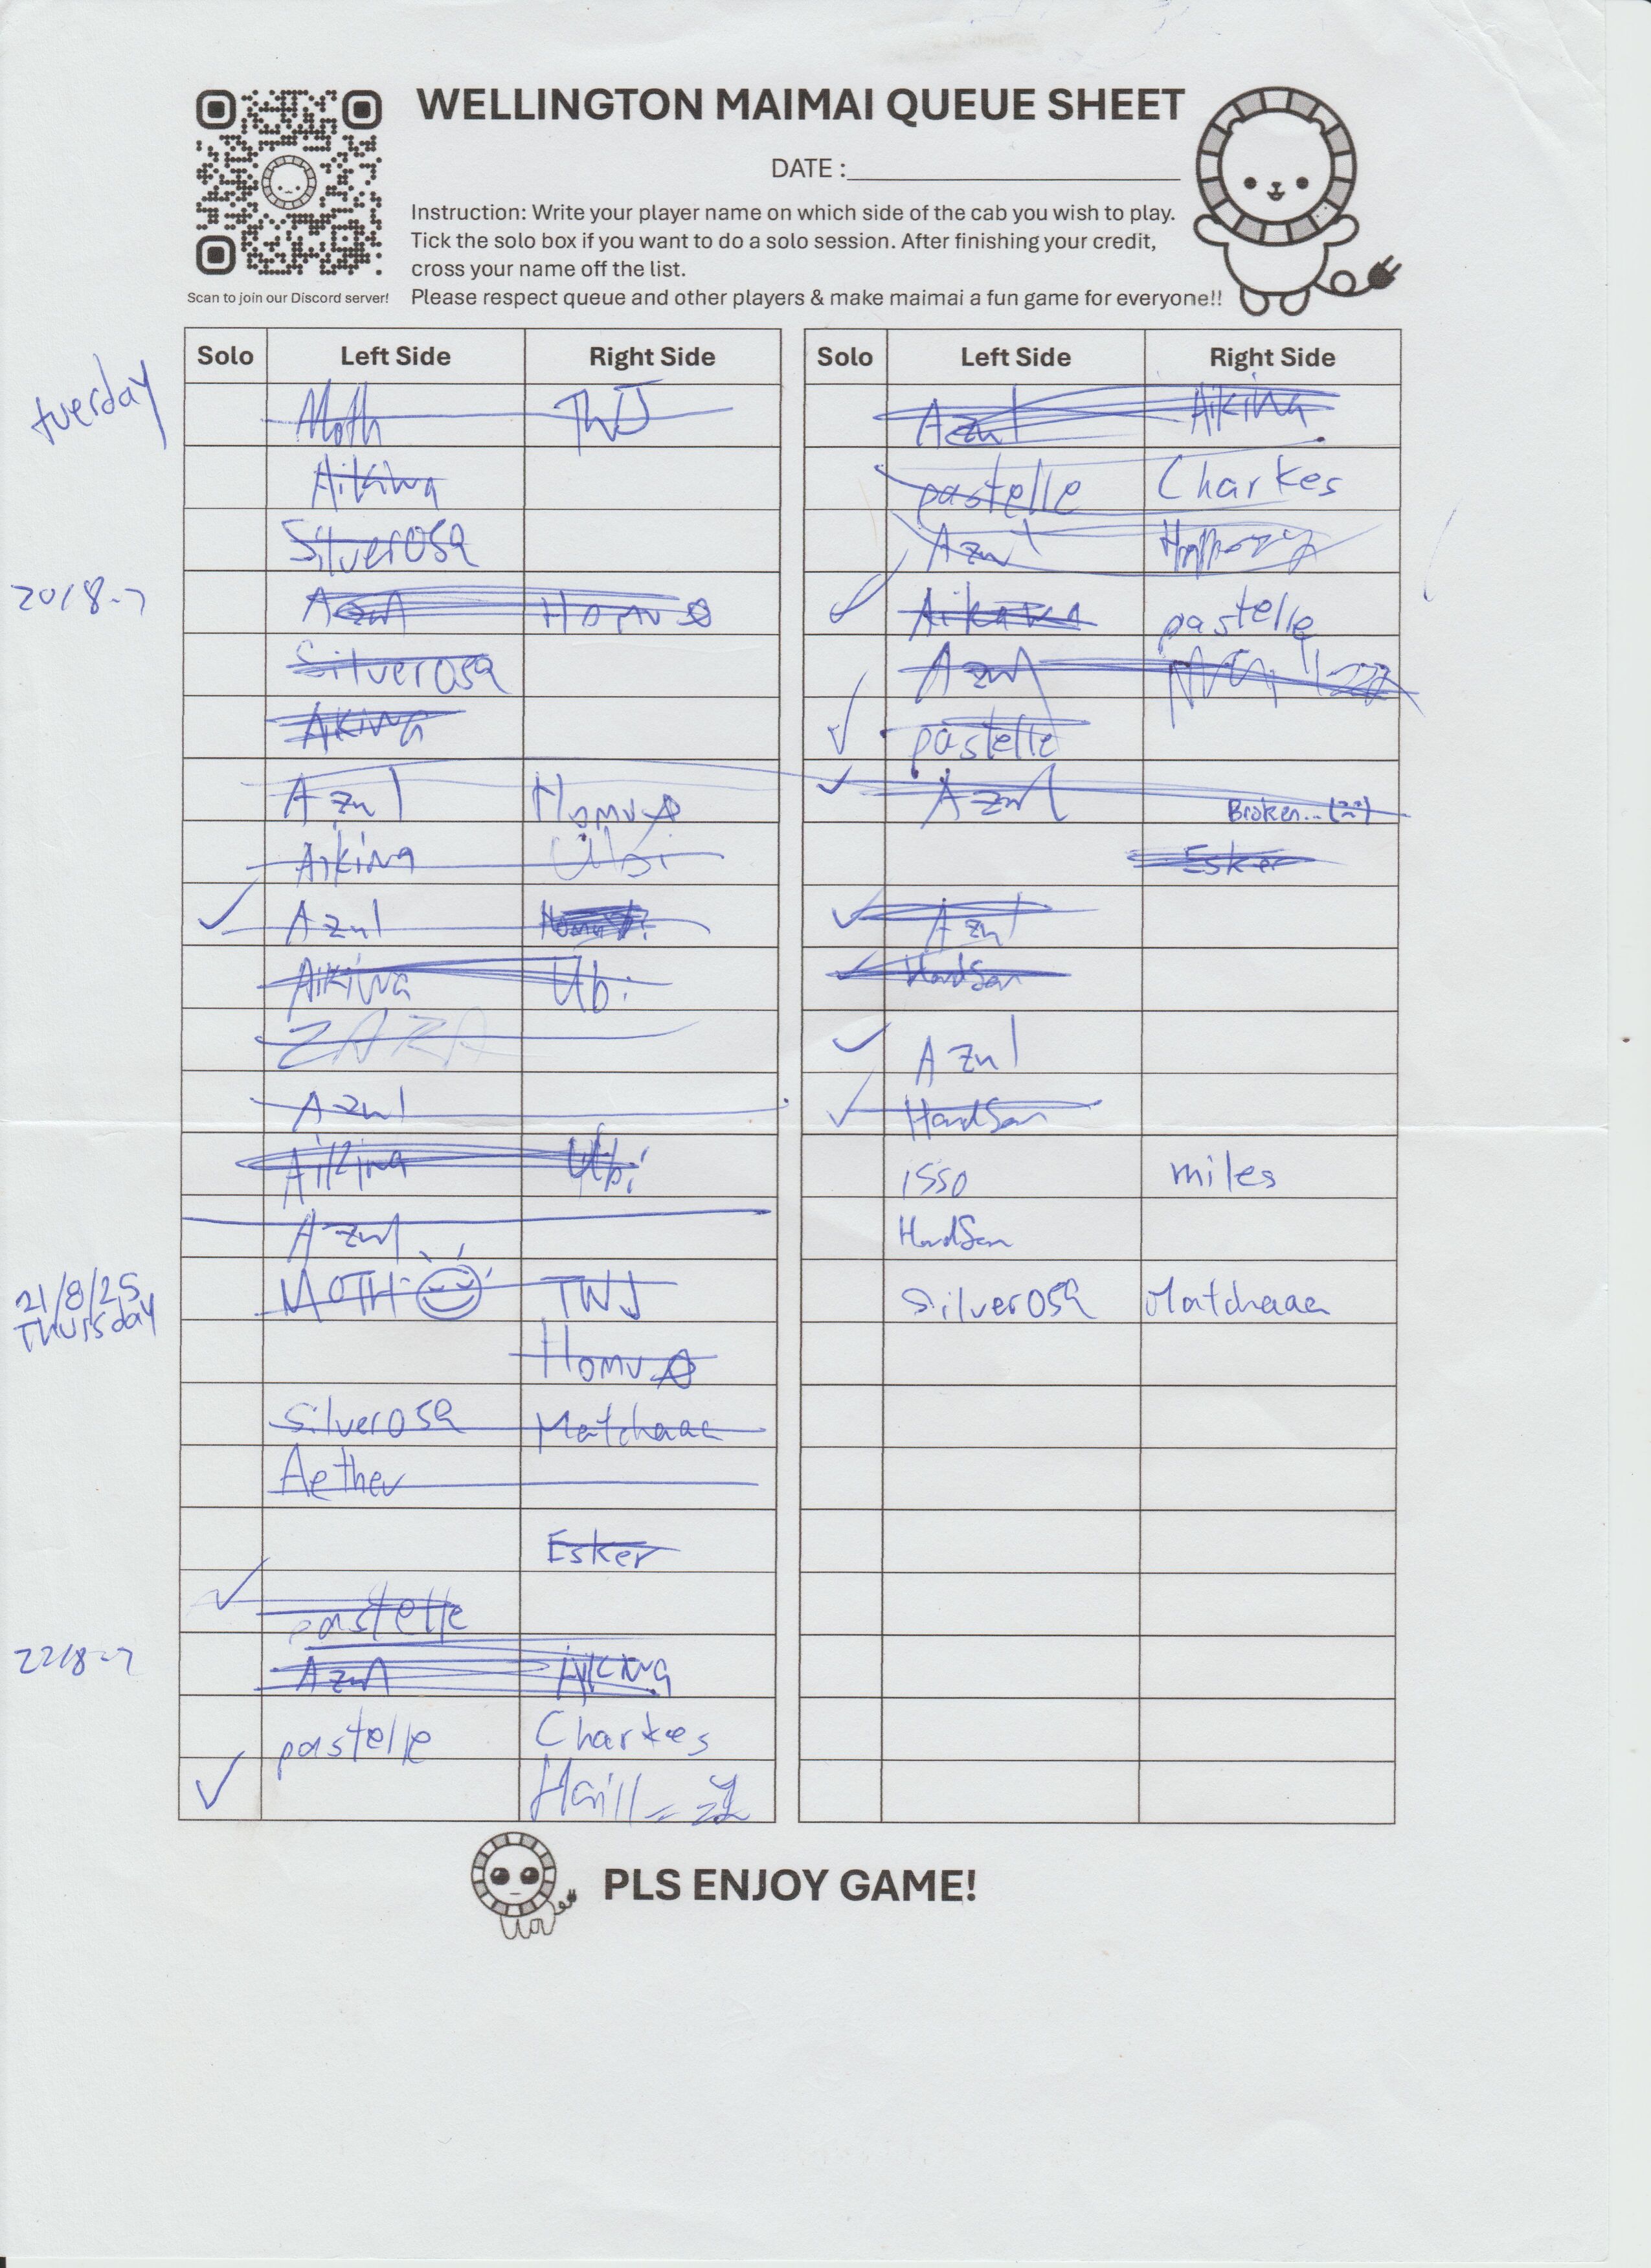 WELLINGTON MAIMAI QUEUE SHEET
DATE :
Instruction: Write your player name on which side of the cab you wish to play.
Tick the solo box if you want to do a solo session. After finishing your credit,
cross your name off the list.
Please respect queue and other players & make maimai a fun game for everyone!!
Scan to join our Discord server!
Solo Left Side Right Side
tuerday
Moth TWJ
Aikiwa
Silver0sa
20/8->
Azul Homu☆
Silver0sa
Akiwa
Azul Homu☆
Aikiwa Ubi
✓ Azul
Aikiwa Ubi
ZARA
Azul
Aikiwa Ubi
Azul
21/8/25
Thursday
MOTH TWJ
Homu☆
Silver0sa Matchaaa
Aether
Esker
✓ pastelle
22/8->
Azul Aikiwa
pastelle Charkes
✓
Solo Left Side Right Side
Azul Aikiwa
pastelle Charkes
Azul
✓ Aikawa pastelle
Azul
✓ pastelle
✓ Azul Broken...
Esker
✓ Azul
✓ HardSan
✓ Azul
✓ HardSan
isso miles
HardSan
Silver0sa Matchaaa
PLS ENJOY GAME!